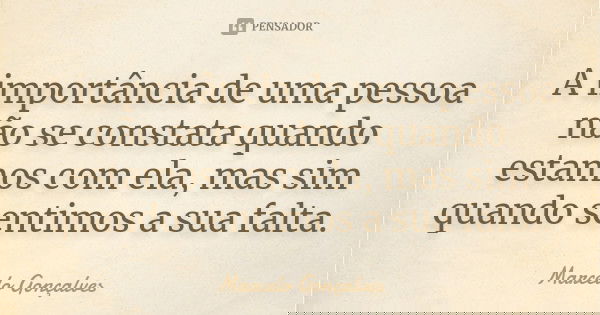 PENSADOR
A importância de uma pessoa
não se constata quando
estamos com ela, mas sim
quando sentimos a sua falta.
Marcelo Gonçalves